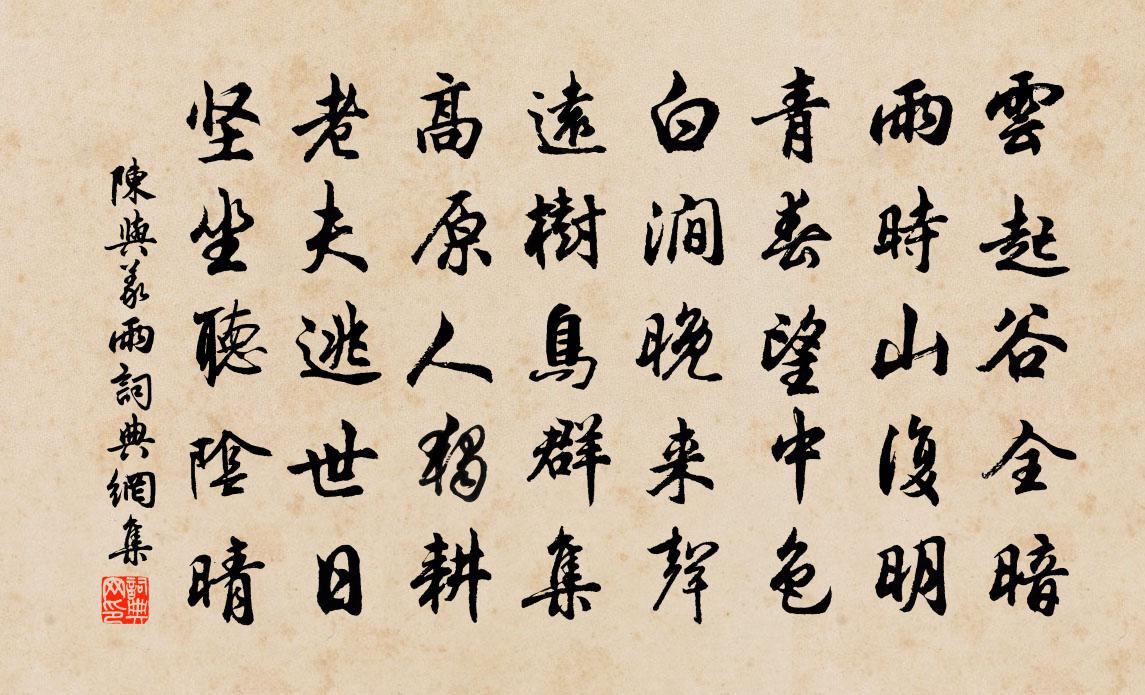 雲起谷全暗
雨時山復明
青春望中色
白澗晚来聲
遠樹鳥群集
高原人獨耕
老夫逃世日
坚坐聽陰晴
陳與義雨詞典網集
詞典网印